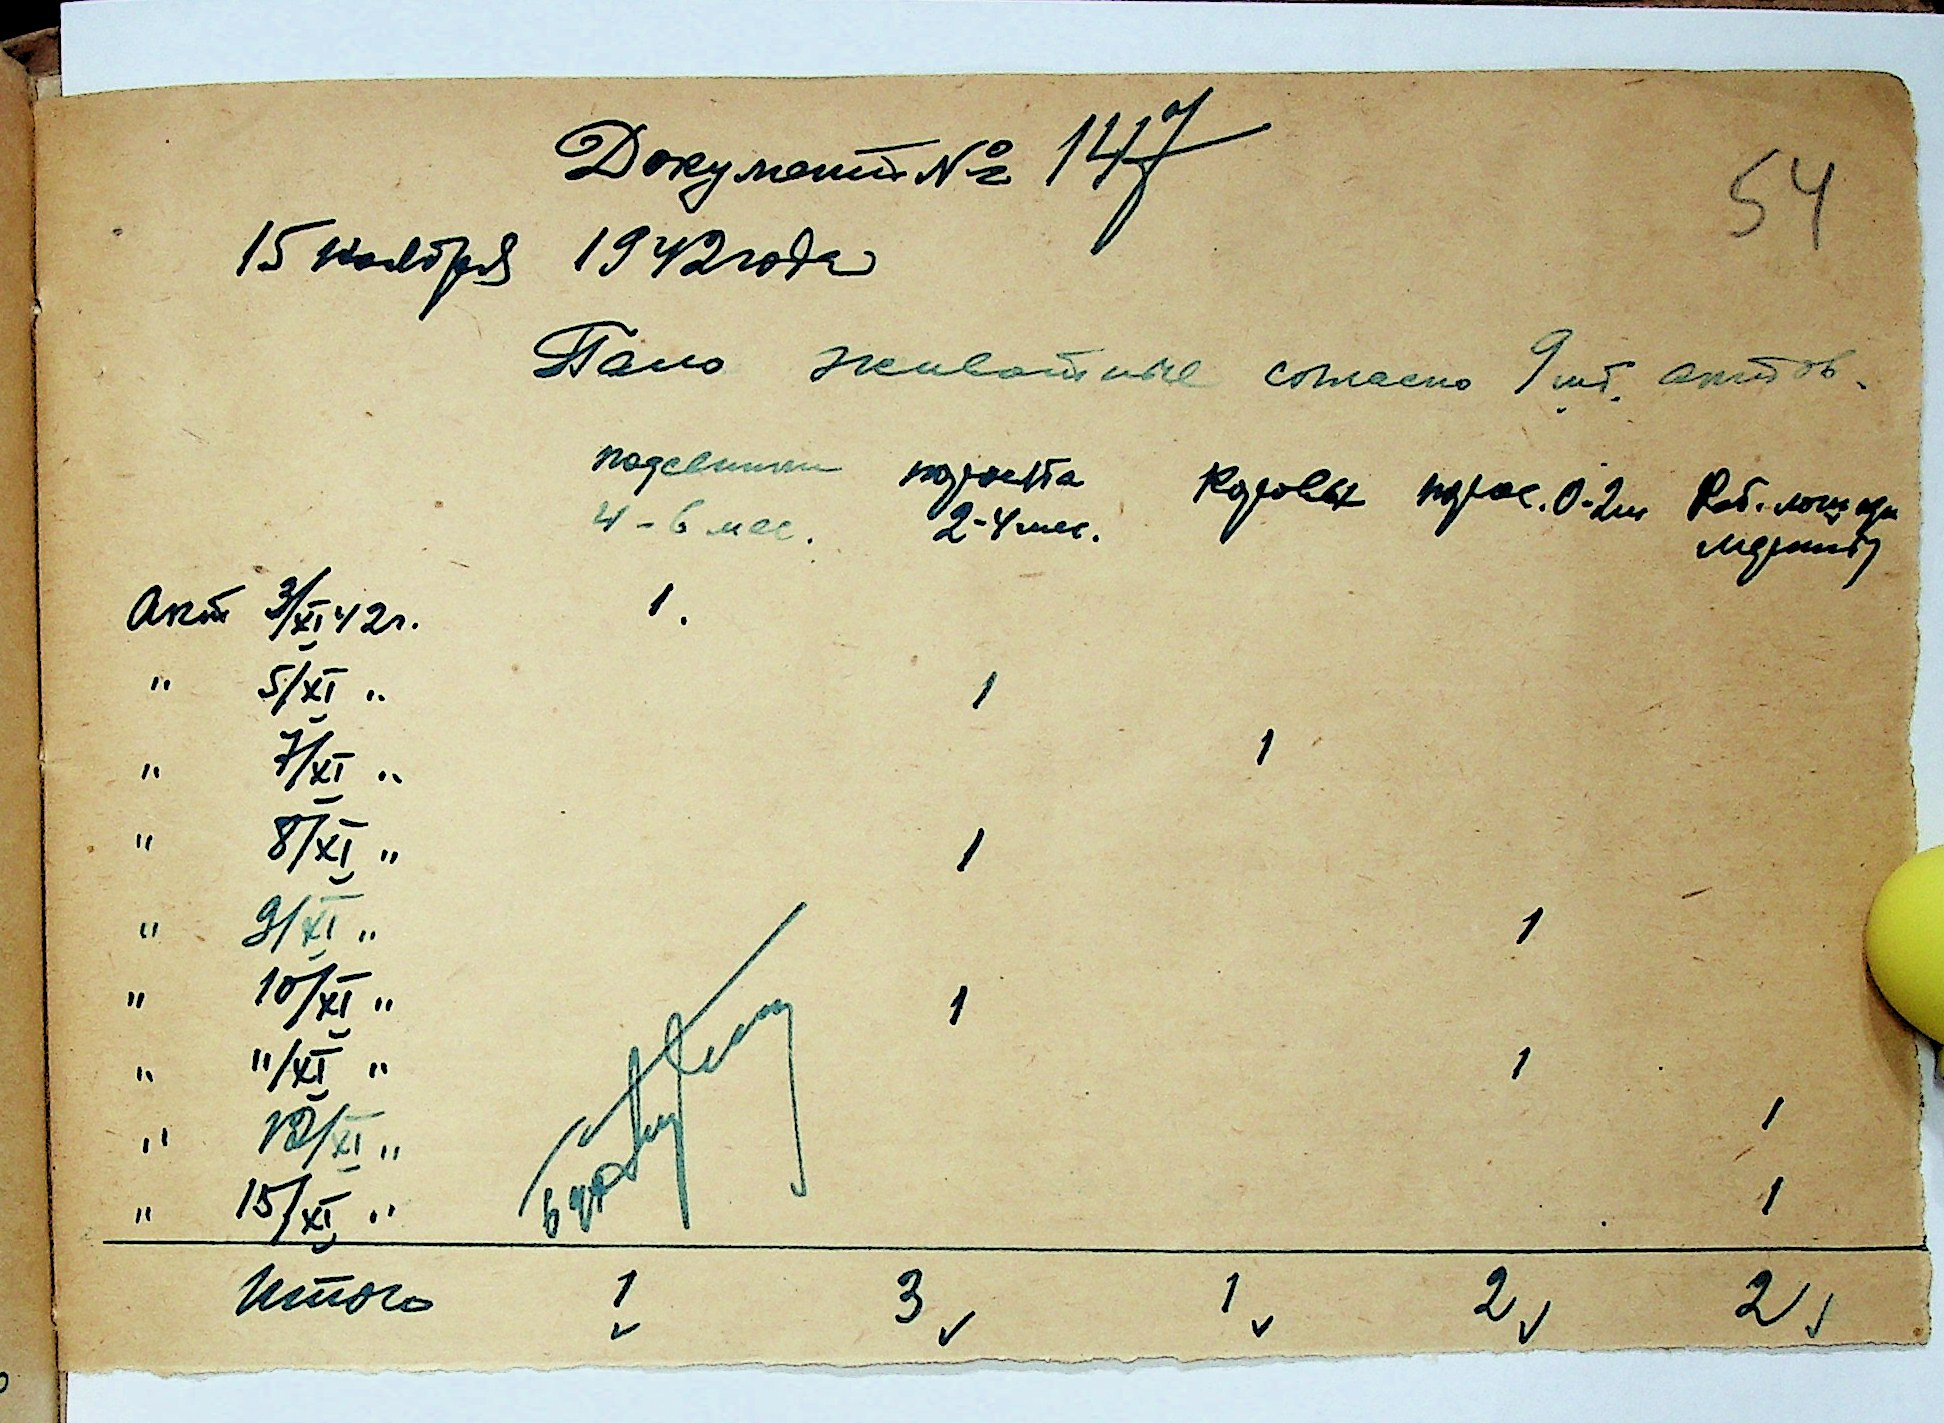 Документ № 147
54
15 ноября 1942 года
Пало животные согласно 9 шт. актов.
подсвинки поросята Коровы порос. 0-2 м Раб. лошади
4-6 мес. 2-4 мес. мерины
Акт 3/XI 42 г. 1.
" 5/XI " 1
" 7/XI " 1
" 8/XI " 1
" 9/XI " 1
" 10/XI " 1
" "/XI " 1
" 12/XI " 1
" 15/XI " 1
Итого 1 3 1 2 2